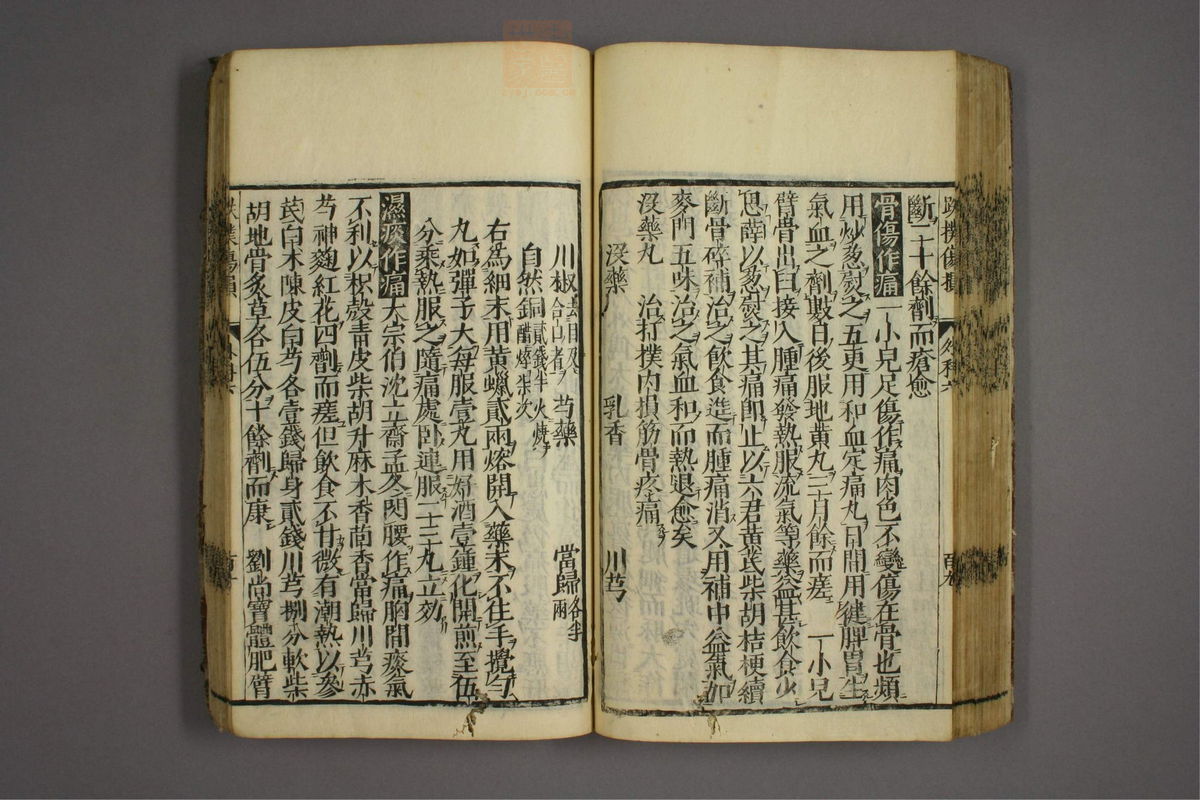 斷二十餘劑而瘡愈
骨傷作痛 一小兒足傷作痛肉色不變傷在骨也頻
用炒葱熨之五更用和血定痛丸日間用健脾胃生
氣血之劑數日後服地黃丸三月餘而瘥 一小兒
臂骨出臼接入腫痛發熱服流氣等藥益甚飲食少
思薛以葱熨之其痛即止以六君黃芪柴胡桔梗續
斷骨碎補治之飲食進而腫痛消又用補中益氣加
麥門五味治之氣血和而熱退愈矣
沒藥丸 治打撲內損筋骨疼痛
沒藥 乳香 川芎
川椒 去目及合口者 芍藥 當歸 各半兩
自然銅 貳錢半火煅醋淬柒次
右為細末用黃蠟貳兩熔開入藥末不住手攪勻
丸如彈子大每服壹丸用好酒壹鍾化開煎至伍
分乘熱服之隨痛處臥連服二三丸立効
濕痰作痛 大宗伯沈立齋孟冬閃腰作痛胸間痰氣
不利以枳殼青皮柴胡升麻木香茴香當歸川芎赤
芍神麴紅花四劑而瘥但飲食不甘微有潮熱以參
芪白朮陳皮白芍各壹錢歸身貳錢川芎捌分軟柴
胡地骨炙草各伍分十餘劑而康 劉尚寶體肥臂